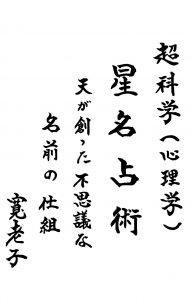 超科学(心理学)
星名占術
天が創った不思議な
名前の仕組
寛老子